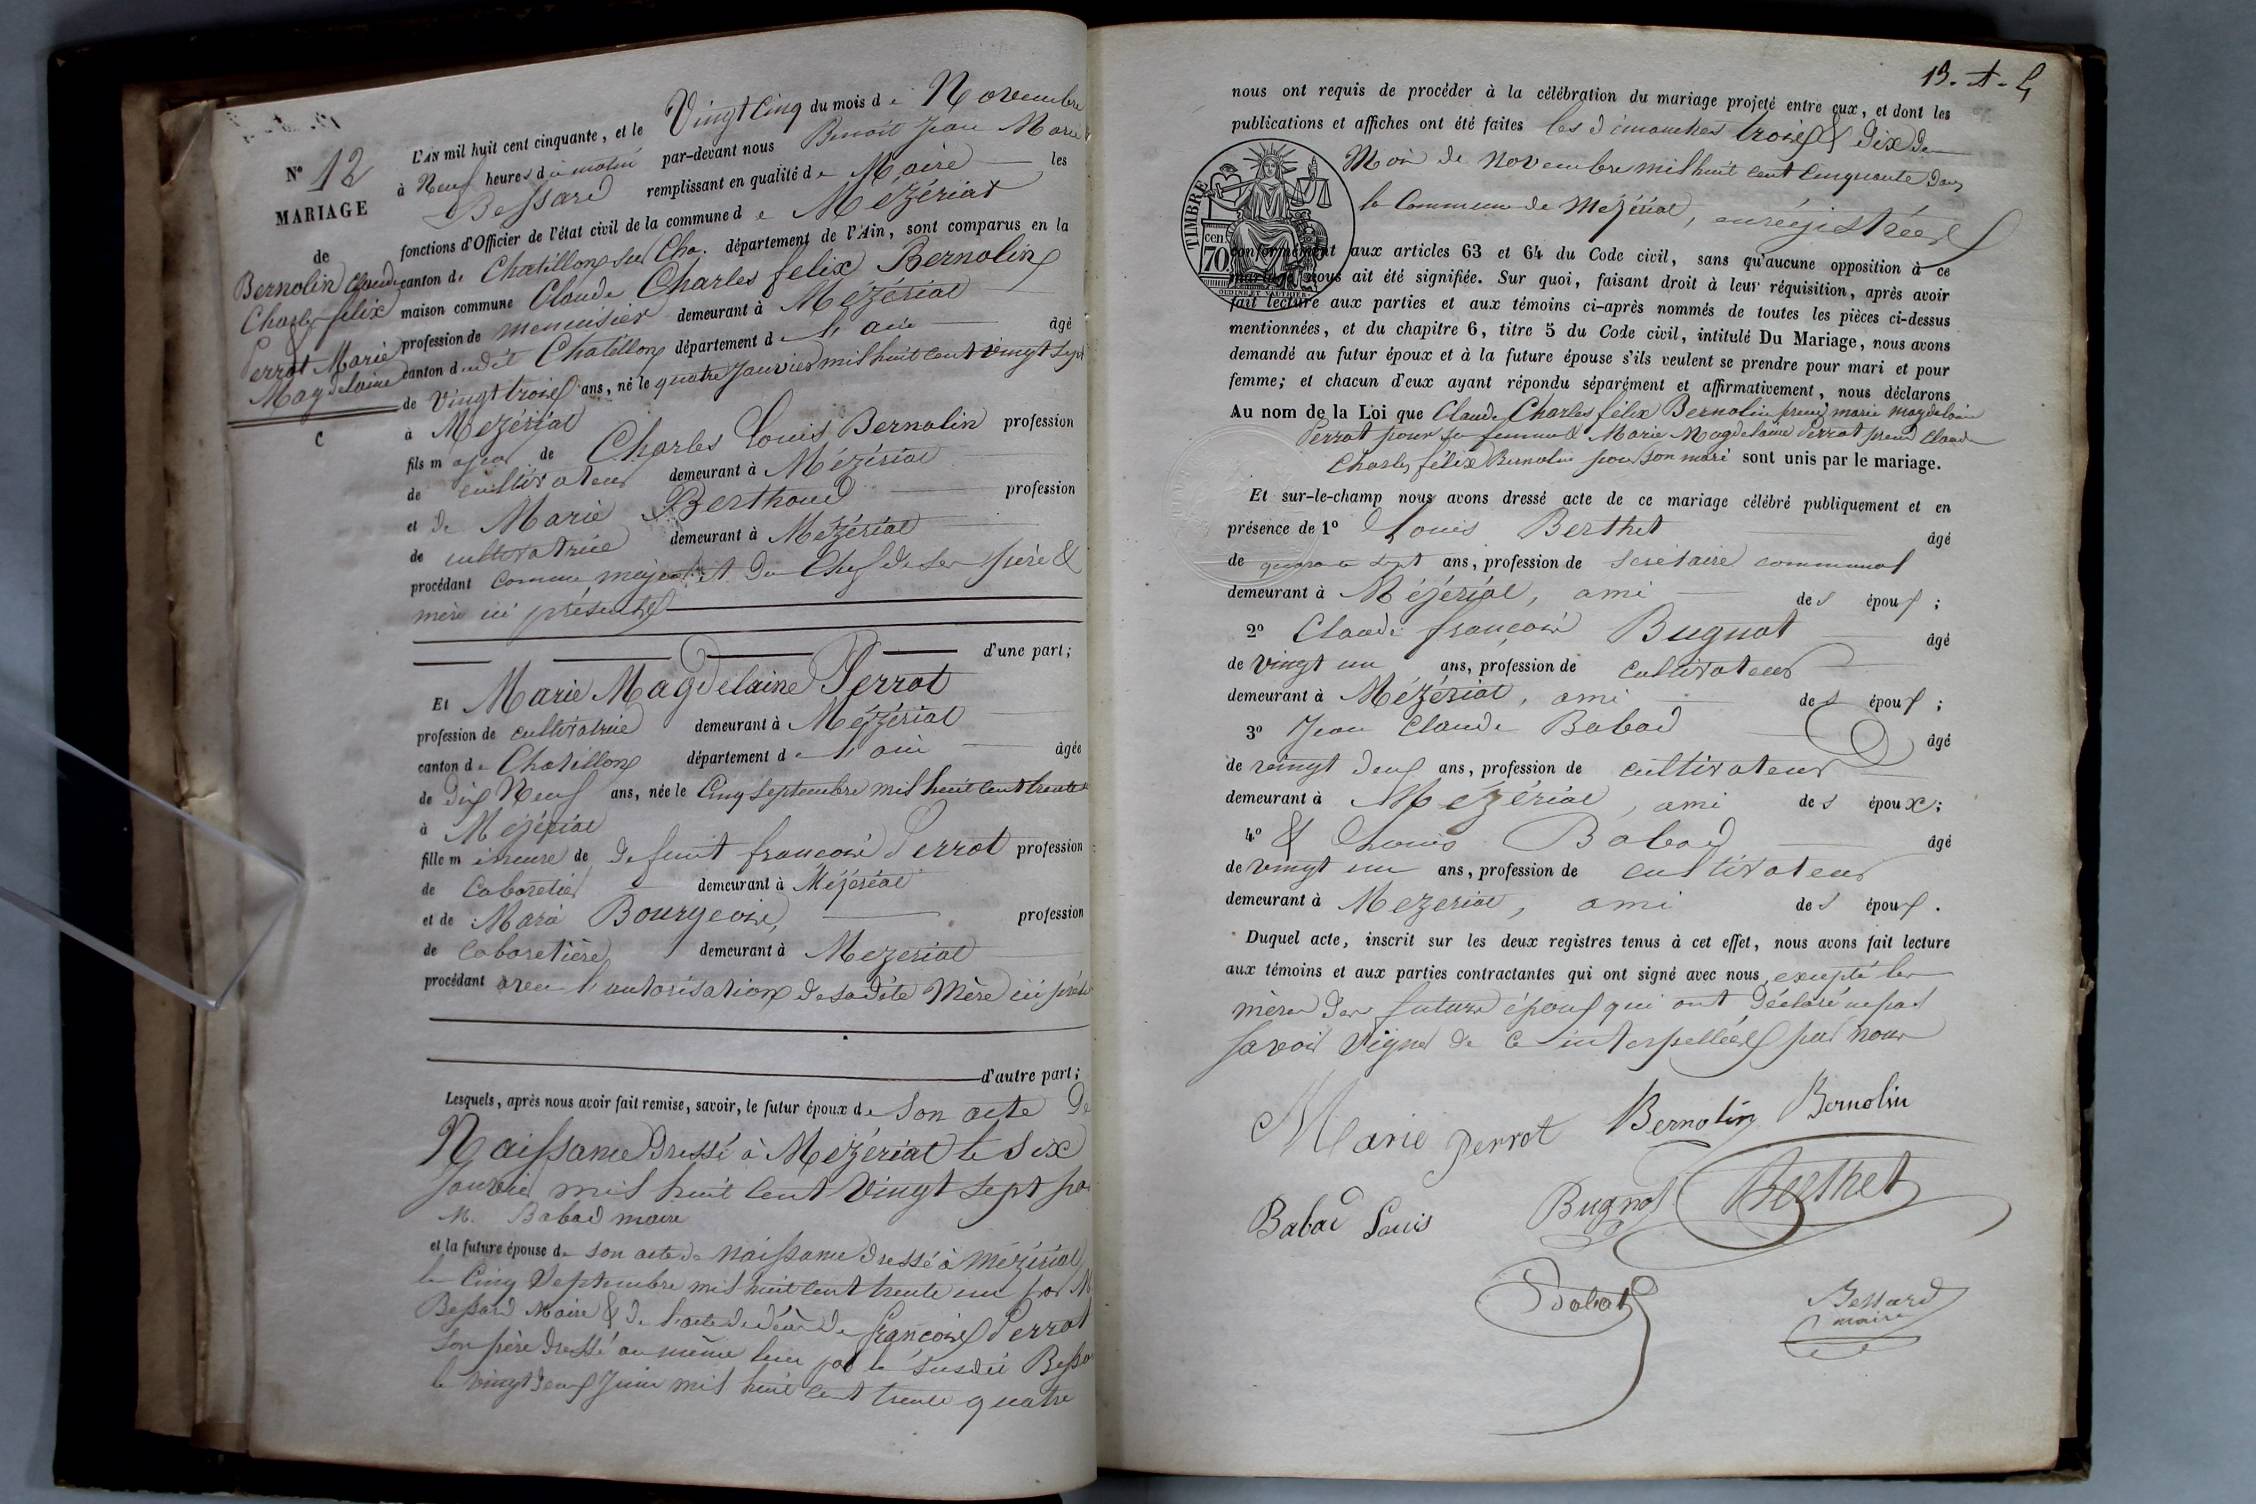 N° 12
MARIAGE
de
Bernolin Claude
Charles félix
&
Perrot Marie
Magdelaine
C
L'AN mil huit cent cinquante, et le Vingt Cinq du mois de Novembre
à Neuf heures du matin par-devant nous Benoit Jean Marie
Bessard remplissant en qualité de Maire les
fonctions d'Officier de l'état civil de la commune de Mézériat
canton de Chatillon sur Cha. département de l'Ain, sont comparus en la
maison commune Claude Charles felix Bernolin
profession de menuisier demeurant à Mézériat
canton dudit Chatillon département de l'ain âgé
de Vingt trois ans, né le quatre Janvier mil huit cent vingt sept
à Mézériat
fils majeur de Charles Louis Bernolin profession
de cultivateur demeurant à Mézériat
et de Marie Berthoud profession
de cultivatrice demeurant à Mézériat
procédant comme majeur et du Chef de ses père &
mère ici présents
d'une part;
Et Marie Magdelaine Perrot
profession de cultivatrice demeurant à Mézériat
canton de Chatillon département de l'ain âgée
de dix Neuf ans, née le Cinq Septembre mil huit cent trente
à Mézériat
fille mineure de defunt françois Perrot profession
de Cabaretier demeurant à Mézériat
et de Marie Bourgeois, profession
de Cabaretière demeurant à Mezeriat
procédant avec l'autorisation de sadite Mère ici présente
d'autre part;
Lesquels, après nous avoir fait remise, savoir, le futur époux de Son acte de
Naissance dressé à Mézériat le Six
Janvier mil huit Cent Vingt Sept par
M. Babad maire
et la future épouse de son acte de Naissance dressé à Mézériat
le Cinq Septembre mil huit cent trente un par M
Bessard Maire & de l'acte de décès de françois Perrot
son père dressé au même lieu par le susdit Bessard
le vingt deux Juin mil huit cent trente quatre
13. A. 5
nous ont requis de procéder à la célébration du mariage projeté entre eux, et dont les
publications et affiches ont été faites les dimanches trois & dix du
Mois de Novembre mil huit cent Cinquante dans
la Commune de Mézériat, enrégistrées
TIMBRE
70 cen.
OUDINÉ ET VAUTHIER
conformément aux articles 63 et 64 du Code civil, sans qu'aucune opposition à ce
mariage nous ait été signifiée. Sur quoi, faisant droit à leur réquisition, après avoir
fait lecture aux parties et aux témoins ci-après nommés de toutes les pièces ci-dessus
mentionnées, et du chapitre 6, titre 5 du Code civil, intitulé Du Mariage, nous avons
demandé au futur époux et à la future épouse s'ils veulent se prendre pour mari et pour
femme; et chacun d'eux ayant répondu séparément et affirmativement, nous déclarons
Au nom de la Loi que Claude Charles félix Bernolin prend marie magdelaine
Perrot pour sa femme & Marie Magdelaine Perrot prend Claude
Charles félix Bernolin pour son mari sont unis par le mariage.
Et sur-le-champ nous avons dressé acte de ce mariage célébré publiquement et en
présence de 1° Louis Berthet âgé
de ans, profession de secrétaire communal
demeurant à Mézériat, ami des époux;
2° Claude françois Bugnot âgé
de vingt un ans, profession de cultivateur
demeurant à Mézériat, ami des époux;
3° Jean Claude Babad âgé
de vingt deux ans, profession de cultivateur
demeurant à Mézériat, ami des époux;
4° & Louis Babad âgé
de vingt un ans, profession de cultivateur
demeurant à Mezeriat, ami des époux.
Duquel acte, inscrit sur les deux registres tenus à cet effet, nous avons fait lecture
aux témoins et aux parties contractantes qui ont signé avec nous, excepté les
mères des futurs époux qui ont déclaré ne pas
savoir signer de ce interpellées par nous
Marie Perrot Bernolin Bernolin
Babad Louis Bugnot Berthet
Babad Bessard
maire